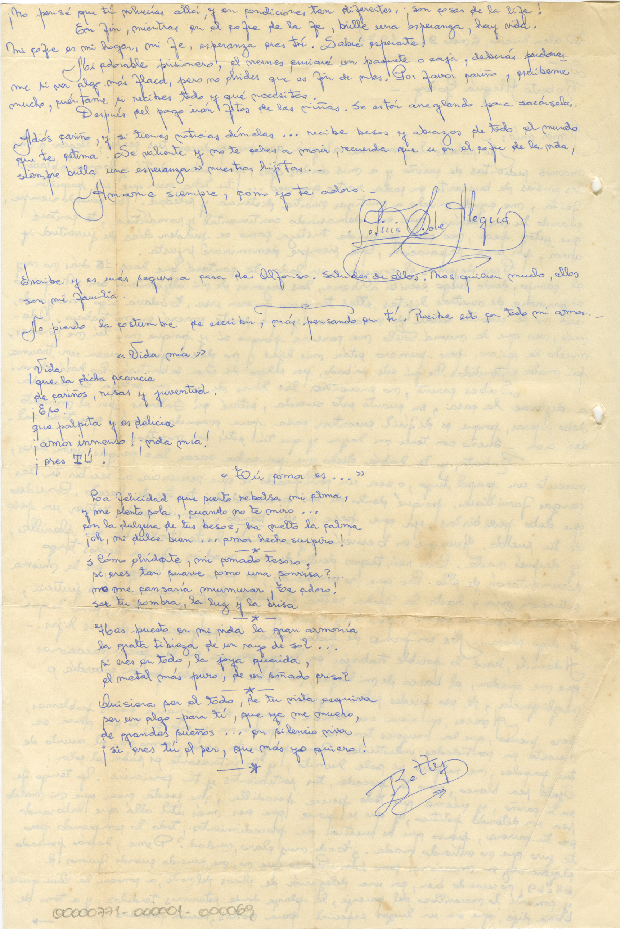 No pensé que tú volverías allá, y en condiciones tan diferentes... son cosas de la vida!
En fin, mientras en el cofre de la fe, brille una esperanza, hay vida.
Mi cofre es mi hogar, mi fe, esperanza eres tú. Sabré esperarte!
Mi adorable prisionero, el viernes enviaré un paquete a casa, deberás perdonar-
me si va algo más flaco, pero no olvides que es fin de mes. Por favor cariño, escríbeme
mucho, cuéntame si recibes todo y que necesitas.
Después del pago irán ftos de las niñas. Se están arreglando para sacársela.
Adiós cariño, y si tienes noticias dímelas... recibe besos y abrazos de todo el mundo
que te estima. Se valiente y no te eches a morir, recuerda que en el cofre de la vida,
siempre brilla una esperanza = nuestras hijitas...
Amame siempre, como yo te adoro. -
Alegría
Escribe y es más seguro a casa de Alfonso. Saludos de ellos. Nos quieren mucho, ellos
son mi familia.
No pierdo la costumbre de escribir, más pensando en ti. Recibe esto con todo mi amor. -
« Vida mía »
Vida
¡que la dicha
de cariños, risas y juventud.
¡Eso!
que palpita y es delicia
¡amor inmenso! ¡vida mía!
¡eres TÚ!
« Tú como es... »
La felicidad que siento rebalsa mi alma,
y me siento sola, cuando no te miro...
con la dulzura de tus besos, ha vuelto la calma
¡oh, mi dulce bien... amor hecho suspiro!
¿Cómo olvidarte, mi amado tesoro,
si eres tan suave como una sonrisa?
no me cansaría murmurar, te adoro!
ser tu sombra, la luz y la brisa
Has puesto en mi vida la gran armonía
la grata tibieza de un rayo de sol...
si eres en todo, la joya querida,
el metal más puro, de un soñado crisol
Quisiera ser el todo, de tu vista esquiva
ser un algo - para ti, que ya me muero,
de grandes sueños... en silencio viva
¡si eres tú el ser, que más yo quiero!
Bettsy
00000771-000001-000069